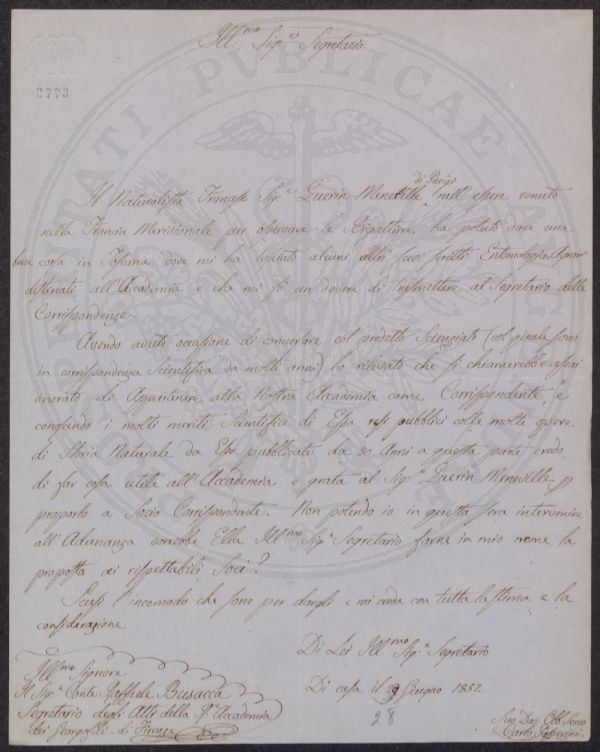 Ill:mo Sig:re Segretario.
2773
di Parigi
Il Naturalista Francese Sig:e Guerin-Meneville, nell'essere venuto
nella Francia Meridionale per osservare le ha potuto dare una
breve corsa in Toscana dove mi ha lasciato alcuni altri suoi scritti Entomologico-Agrari
destinati all'Accademia e che mi fò un dovere di trasmettere al Segretario delle
Corrispondenze.
Avendo avuto occasione di conversare col prodetto Scienziato (col quale sono
in corrispondenza Scientifica da molti anni) ho rilevato che si chiamerebbe assai
onorato di Appartenere alla Nostra Accademia come Corrispondente, e
conoscendo i molti meriti Scientifici di Esso resi pubblici colle molte opere
di Storia Naturale da Esso pubblicate da 20 Anni a questa parte credo
di far cosa utile all'Accademia e grata al Sig:e Guerin Meneville
proporlo a Socio Corrispondente. Non potendo io in questa sera intervenire
all'Adunanza vorrebbe Ella Ill:mo Sig:e Segretario farne in mio nome la
proposta ai rispettabili Soci?
Scusi l'incomodo che sono per dargli e mi creda con tutta la stima e la
considerazione
Di Lei Ill:mo Sig:e Segretario
Di casa il Giugno 1852.
28
Ill:mo Signore
Il Sig:e Conte Raffaele Busacca
Segretario degli Atti della R:e Accademia
dei Georgofili di Firenze
Suo Dev Obb Servo
Carlo Passerini
PROSPERITATI PUBLICAE AUGENDAE